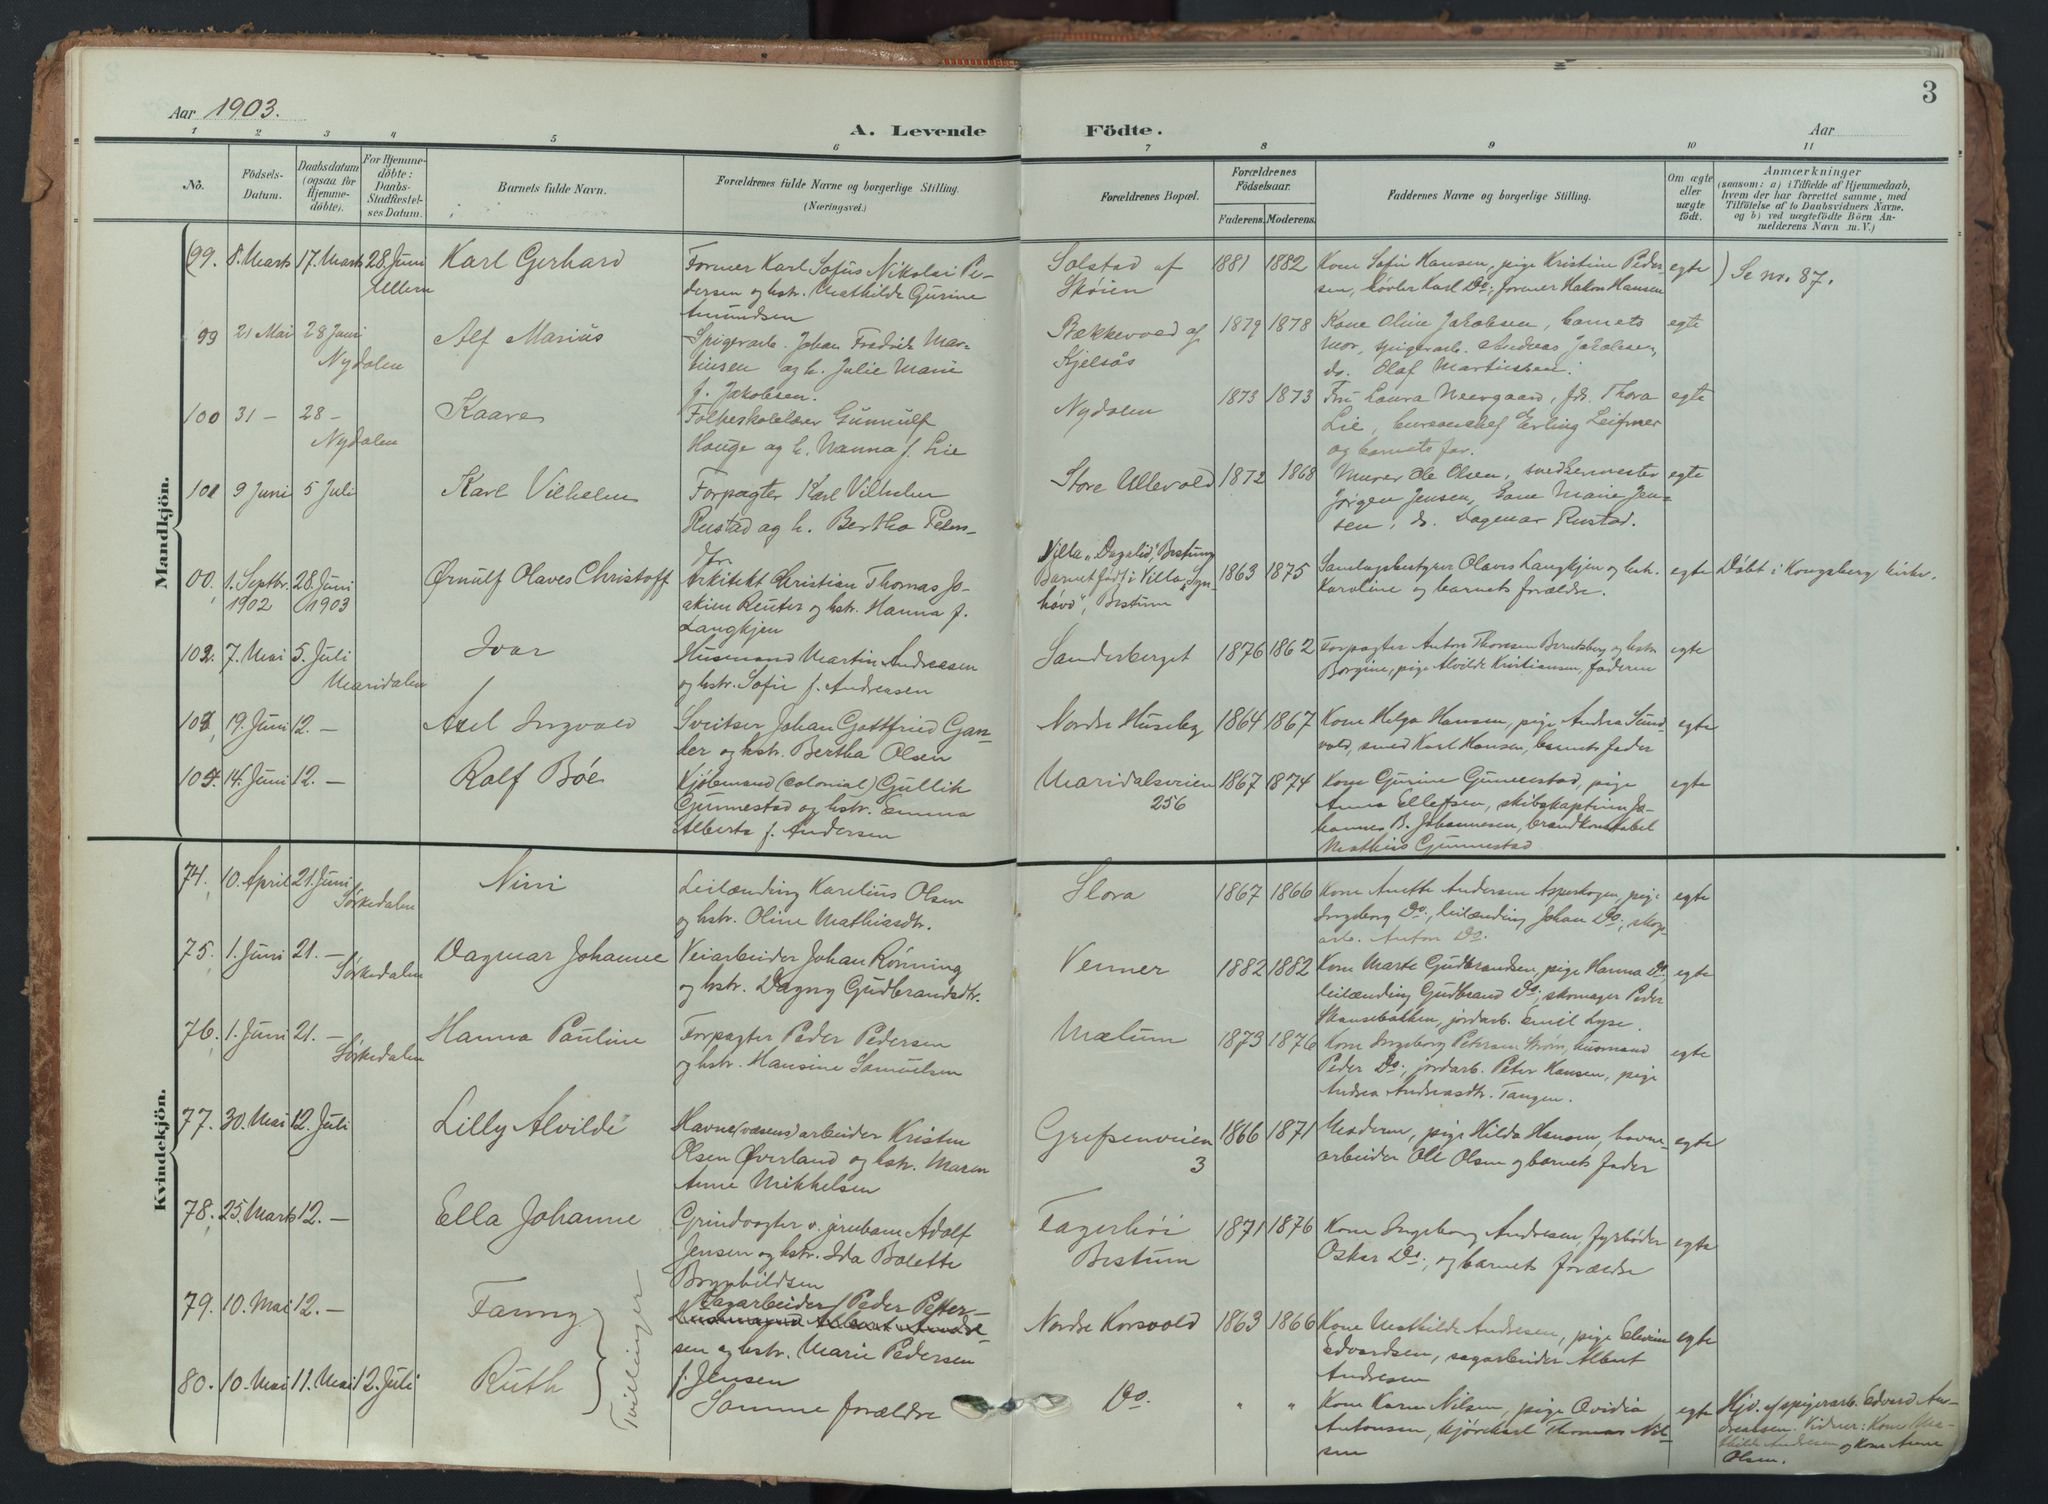 Aar 1903.
A. Levende Födte.
Aar
3
1 2 3 4 5 6 7 8 9 10 11
No.
Födsels-Datum.
Daabsdatum (ogsaa for Hjemme-döbte).
For Hjemme-döbte: Daabs-Stadfæstel-ses Datum.
Barnets fulde Navn.
Forældrenes fulde Navne og borgerlige Stilling.
(Næringsvei.)
Forældrenes Bopæl.
Forældrenes Födselsaar.
Faderens. Moderens.
Faddernes Navne og borgerlige Stilling.
Om ægte eller uægte födt.
Anmærkninger
(saasom: a) i Tilfælde af Hjemmedaab,
hvem der har forrettet samme, med
Tilföielse af to Daabsvidners Navne,
og b) ved uægtefödte Börn An-
melderens Navn m. V.)
Mandkjön.
(99. 8. Marts 17. Marts 28. Juni Ullern
Karl Gerhard
Former Karl Sofus Nikolai Pe-
dersen og hstr. Mathilde Gurine
Amundsen
Solstad af
Skøien
1881 1882
Kone Sofie Hansen, pige Kristine Peder-
sen, Høvler Karl Do; former Hakon Hansen
egte
) Se no. 87.
99 21 Mai 28 Juni Nydalen
Alf Marius
Spigerarb. Johan Fredrik Mar-
tinsen og h. Julie Marie
f. Jakobsen.
Bækkevold af
Kjelsås
1879 1878
Kone Oline Jakobsen, barnets
mor, spigerarb. Andreas Jakobsen,
do. Olaf Martinssen.
egte
100 31 — 28 — Nydalen
Kaare
Folkeskolelærer Gunnulf
Hauge og h. Nanna f. Lie
Nydalen
1873 1873
Fru Laura Neergaard, frk. Thora
Lie, bureauchef Erling
og barnets far.
egte
101 9 Juni 5 Juli
Karl Vilhelm
Forpagter Karl Vilhelm
Rustad og h. Bertha Peders-
dtr.
Store Ullevold
1872 1868
Murer Ole Olsen, snedkermester
Jørgen Jensen, kone Marie Jen-
sen, do. Dagmar Rustad.
egte
00. 1. Septbr. 1902 28. Juni 1903
Ørnulf Olaves Christoff
Arkitekt Christian Thomas Jo-
akim Reuter og hstr. Hanna f.
Langkjen
Villa "Dagalid", Bestum
Barnet født i Villa "Syn-
høvd", Bestum
1863 1875
Samlagsbestyrer Olaves Langkjen og hstr.
Karoline og barnets forældre.
egte
Døbt i Kongsberg kirke.
102. 7. Mai 5. Juli Maridalen
Ivar
Husmand Martin Andreasen
og hstr. Sofie f. Andreasen
Sanderberget
1876 1862
Forpagter Anton Thomsen Berntsberg og hstr.
Borgine, pige Alvilde Kristiansen, faderen
egte
103, 19. Juni 12. —
Axel Ingvald
Sveitser Johan Gottfried Gan-
der og hstr. Bertha Olsen
Nordre Huseby
1864 1867
Kone Helga Hansen, pige Andrea Sund-
vold, smed Karl Hansen, barnets fader
egte
104. 14. Juni 12. —
Rolf Bøe
Kjøbmand (colonial) Gullik
Gunnestad og hstr. Emma
Alberta f. Andersen
Maridalsveien
256
1867 1874
Kone Gurine Gunnestad, pige
Anna Ellefsen, skibskaptein Jo-
hannes B. Johannesen, brandkonstabel
Mathias Gunnestad
egte
Kvindekjön.
74. 10. April 21. Juni Sørkedalen
Nini
Leilænding Karelius Olsen
og hstr. Oline Mathiasdtr.
Slora
1867 1866
Kone Anette Andersen Asperskogen, pige
Ingeborg Do, leilænding Johan Do, skog-
arb. Anton Do.
egte
75. 1. Juni 21. — Sørkedalen
Dagmar Johanne
Veiarbeider Johan Rønning
og hstr. Dagny Gudbrandsdtr.
Venner
1882 1882
Kone Marte Gudbrandsen, pige Hanna Do,
leilænding Gudbrand Do, skomager Peder
Skansebakken, jordarb. Emil Lyse.
egte
76. 1. Juni 21. — Sørkedalen
Hanna Pauline
Forpagter Peder Pedersen
og hstr. Hansine Samuelsen
Mælum
1873 1876
Kone Ingeborg Petersen Strøm, husmand
Peder Do; jordarb. Peter Hansen, pige
Andrea Andreasdtr. Tangen.
egte
77. 30. Mai 12. Juli
Lilly Alvilde
Havne(væsens)arbeider Kristen
Olsen Øverland og hstr. Maren
Anne Mikkelsen
Grefsenveien
3
1866 1871
Moderen, pige Hilda Hansen, havne-
arbeider Ole Olsen og barnets fader
egte
78. 25. Marts 12. —
Ella Johanne
Grindvogter v. jernbane Adolf
Jensen og hstr. Ida Bolette
Brynhildsen
Fagerhøi
Bestum
1871 1876
Kone Ingeborg Andresen, fyrbøder
Oskar Do, og barnets forældre
egte
79. 10. Mai 12. —
Fanny
Tvillinger
Sagarbeider Peder Petter-
sen og hstr. Marie Pedersen
f. Jensen
Nordre Korsvold
1863 1866
Kone Mathilde Andresen, pige
Edvardsen, sagarbeider Albert
Andresen
egte
80. 10. Mai 11. Mai 12. Juli
Ruth
Samme forældre
Do.
" "
Kone Karen Nilsen, pige Ovidia
Antonsen, kjørekarl Thomas Nil-
sen
egte
Hjd. af spigerarb. Edvard An-
dreassen. Vidner: Kone Ma-
thilde Andresen og Kone Anne
Olsen.